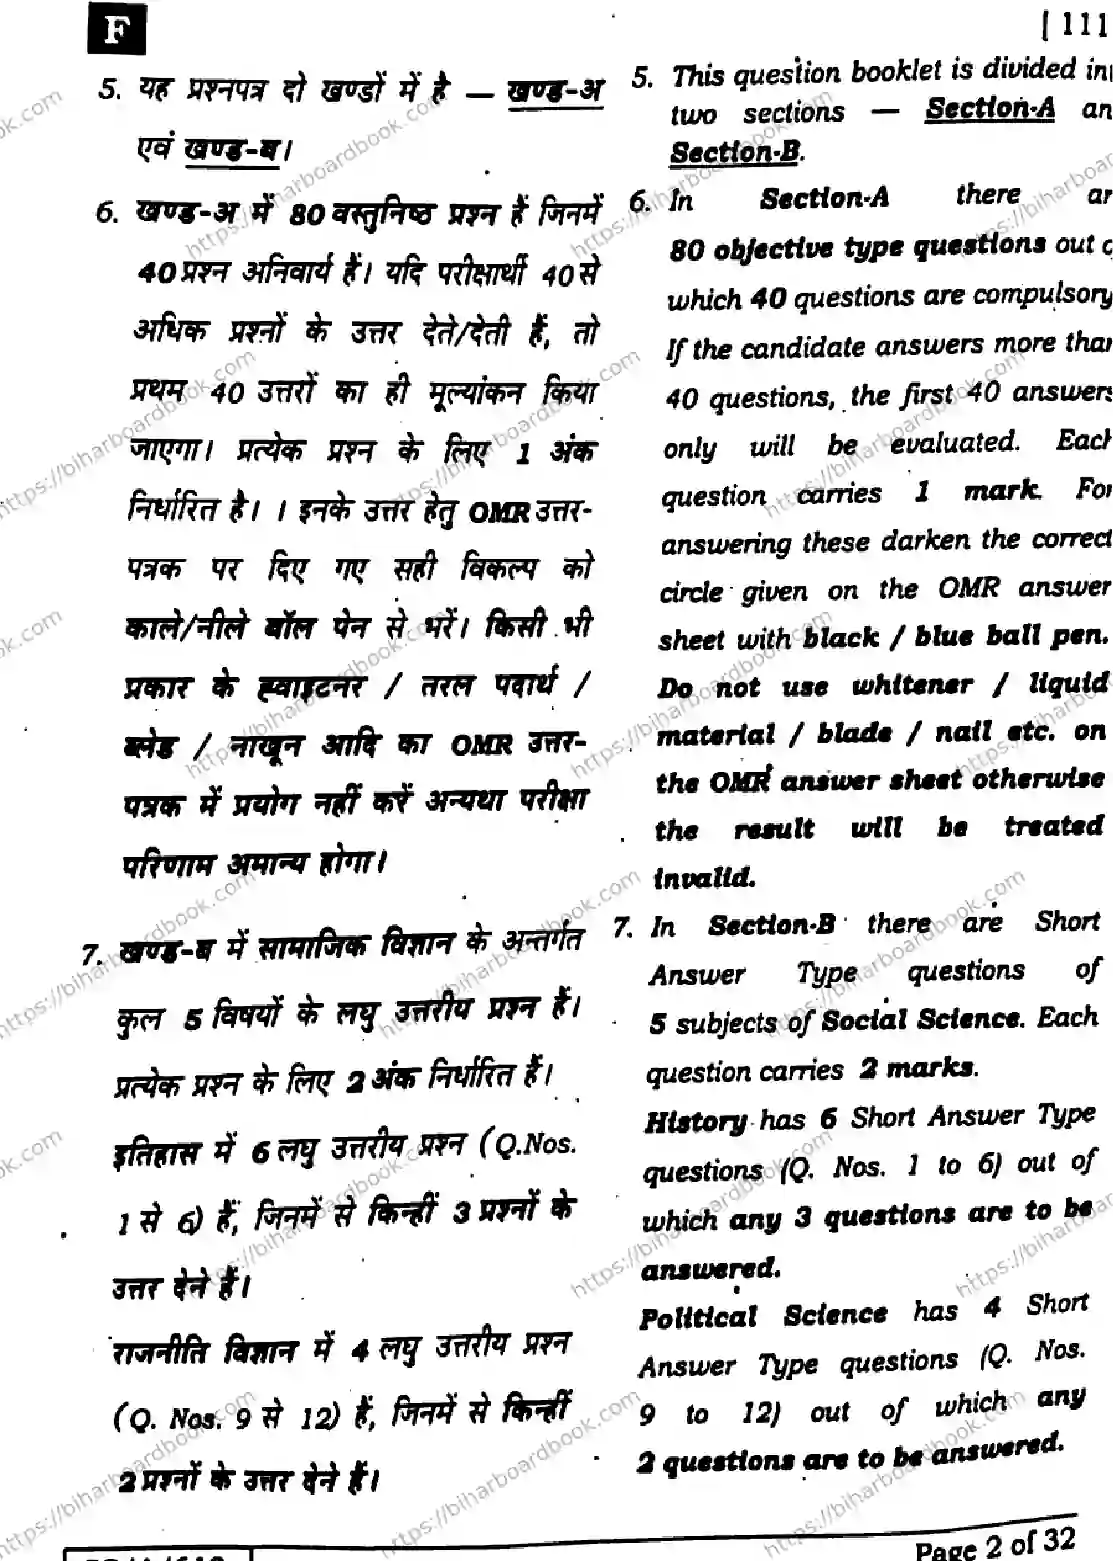 F
[ 111
5. यह प्रश्नपत्र दो खण्डों में है — खण्ड-अ
एवं खण्ड-ब।
6. खण्ड-अ में 80 वस्तुनिष्ठ प्रश्न हैं जिनमें
40 प्रश्न अनिवार्य हैं। यदि परीक्षार्थी 40 से
अधिक प्रश्नों के उत्तर देते/देती हैं, तो
प्रथम 40 उत्तरों का ही मूल्यांकन किया
जाएगा। प्रत्येक प्रश्न के लिए 1 अंक
निर्धारित है। । इनके उत्तर हेतु OMR उत्तर-
पत्रक पर दिए गए सही विकल्प को
काले/नीले बॉल पेन से भरें। किसी भी
प्रकार के ह्वाइटनर / तरल पदार्थ /
ब्लेड / नाखून आदि का OMR उत्तर-
पत्रक में प्रयोग नहीं करें अन्यथा परीक्षा
परिणाम अमान्य होगा।
7. खण्ड-ब में सामाजिक विज्ञान के अन्तर्गत
कुल 5 विषयों के लघु उत्तरीय प्रश्न हैं।
प्रत्येक प्रश्न के लिए 2 अंक निर्धारित हैं।
इतिहास में 6 लघु उत्तरीय प्रश्न (Q.Nos.
1 से 6) हैं, जिनमें से किन्हीं 3 प्रश्नों के
उत्तर देने हैं।
राजनीति विज्ञान में 4 लघु उत्तरीय प्रश्न
(Q. Nos. 9 से 12) हैं, जिनमें से किन्हीं
2 प्रश्नों के उत्तर देने हैं।
5. This question booklet is divided in
two sections — Section-A an
Section-B.
6. In Section-A there ar
80 objective type questions out o
which 40 questions are compulsory
If the candidate answers more than
40 questions, the first 40 answers
only will be evaluated. Each
question carries 1 mark. For
answering these darken the correct
circle given on the OMR answer
sheet with black / blue ball pen.
Do not use whitener / liquid
material / blade / nail etc. on
the OMR answer sheet otherwise
the result will be treated
invalid.
7. In Section-B there are Short
Answer Type questions of
5 subjects of Social Science. Each
question carries 2 marks.
History has 6 Short Answer Type
questions (Q. Nos. 1 to 6) out of
which any 3 questions are to be
answered.
Political Science has 4 Short
Answer Type questions (Q. Nos.
9 to 12) out of which any
2 questions are to be answered.
Page 2 of 32
https://biharboardbook.com